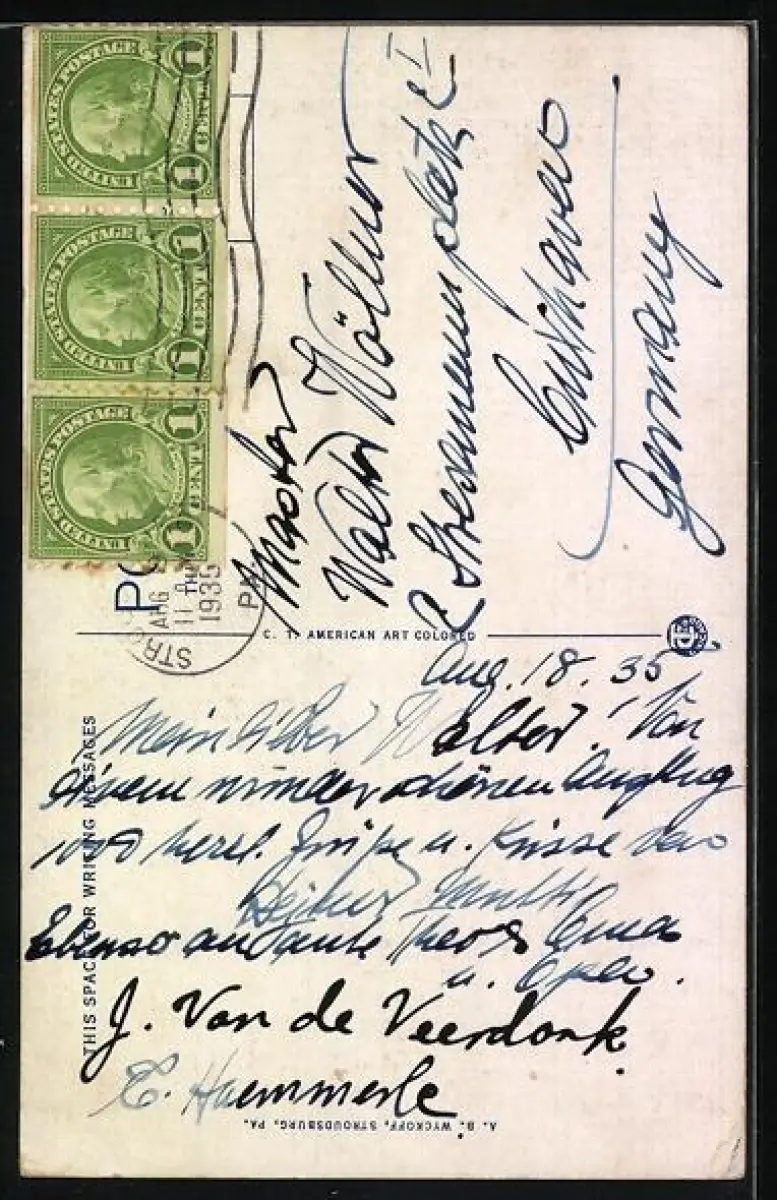 UNITED STATES POSTAGE
1 CENT 1
UNITED STATES POSTAGE
1 CENT 1
UNITED STATES POSTAGE
1 CENT 1
PO
STRO
AUG
11 A
1935
PA.
Master
Walter Wöllner
2 Stresemannplatz II
Cuxhaven
Germany
C. T. AMERICAN ART COLORED
THIS SPACE FOR WRITING MESSAGES
Aug. 18. 35
Mein lieber Walter! Von
einem wunderschönen Ausflug
1000 herzl. Grüße u. Küsse von
Deiner Mutti
Ebenso an Tante Theos Oma
u. Opa.
J. Van de Veerdonk
E. Haemmerle
A. B. WYCKOFF, STROUDSBURG, PA.